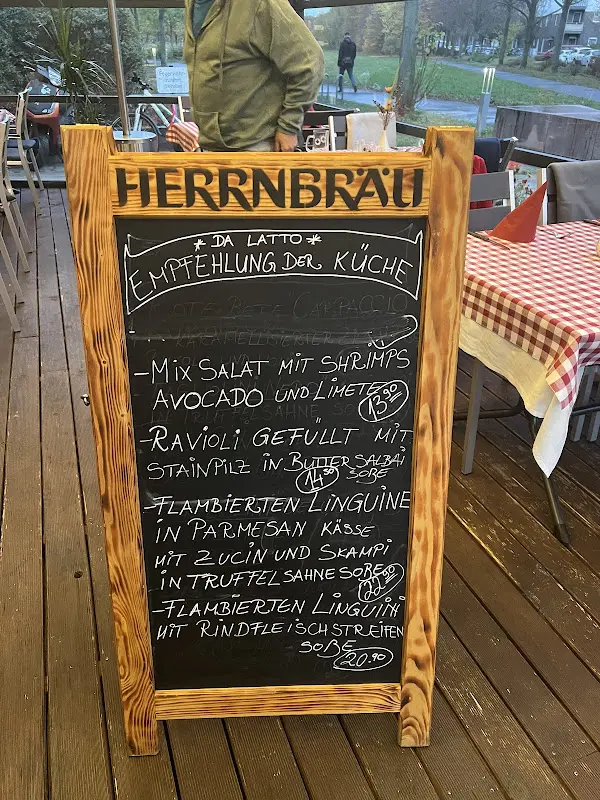 HERRNBRÄU
* DA LATTO *
EMPFEHLUNG DER KÜCHE
-MIX SALAT MIT SHRIMPS
AVOCADO UND LIMETE
13,90
-RAVIOLI GEFÜLLT MIT
STAINPILZ IN BUTTER SALBAI
14,50 SOßE
-FLAMBIERTEN LINGUINE
IN PARMESAN KÄSSE
MIT ZUCIN UND SKAMPI
IN TRUFFELSAHNE SOßE
22,90
-FLAMBIERTEN LINGUINI
MIT RINDFLEISCHSTREIFEN
SOßE
20,90